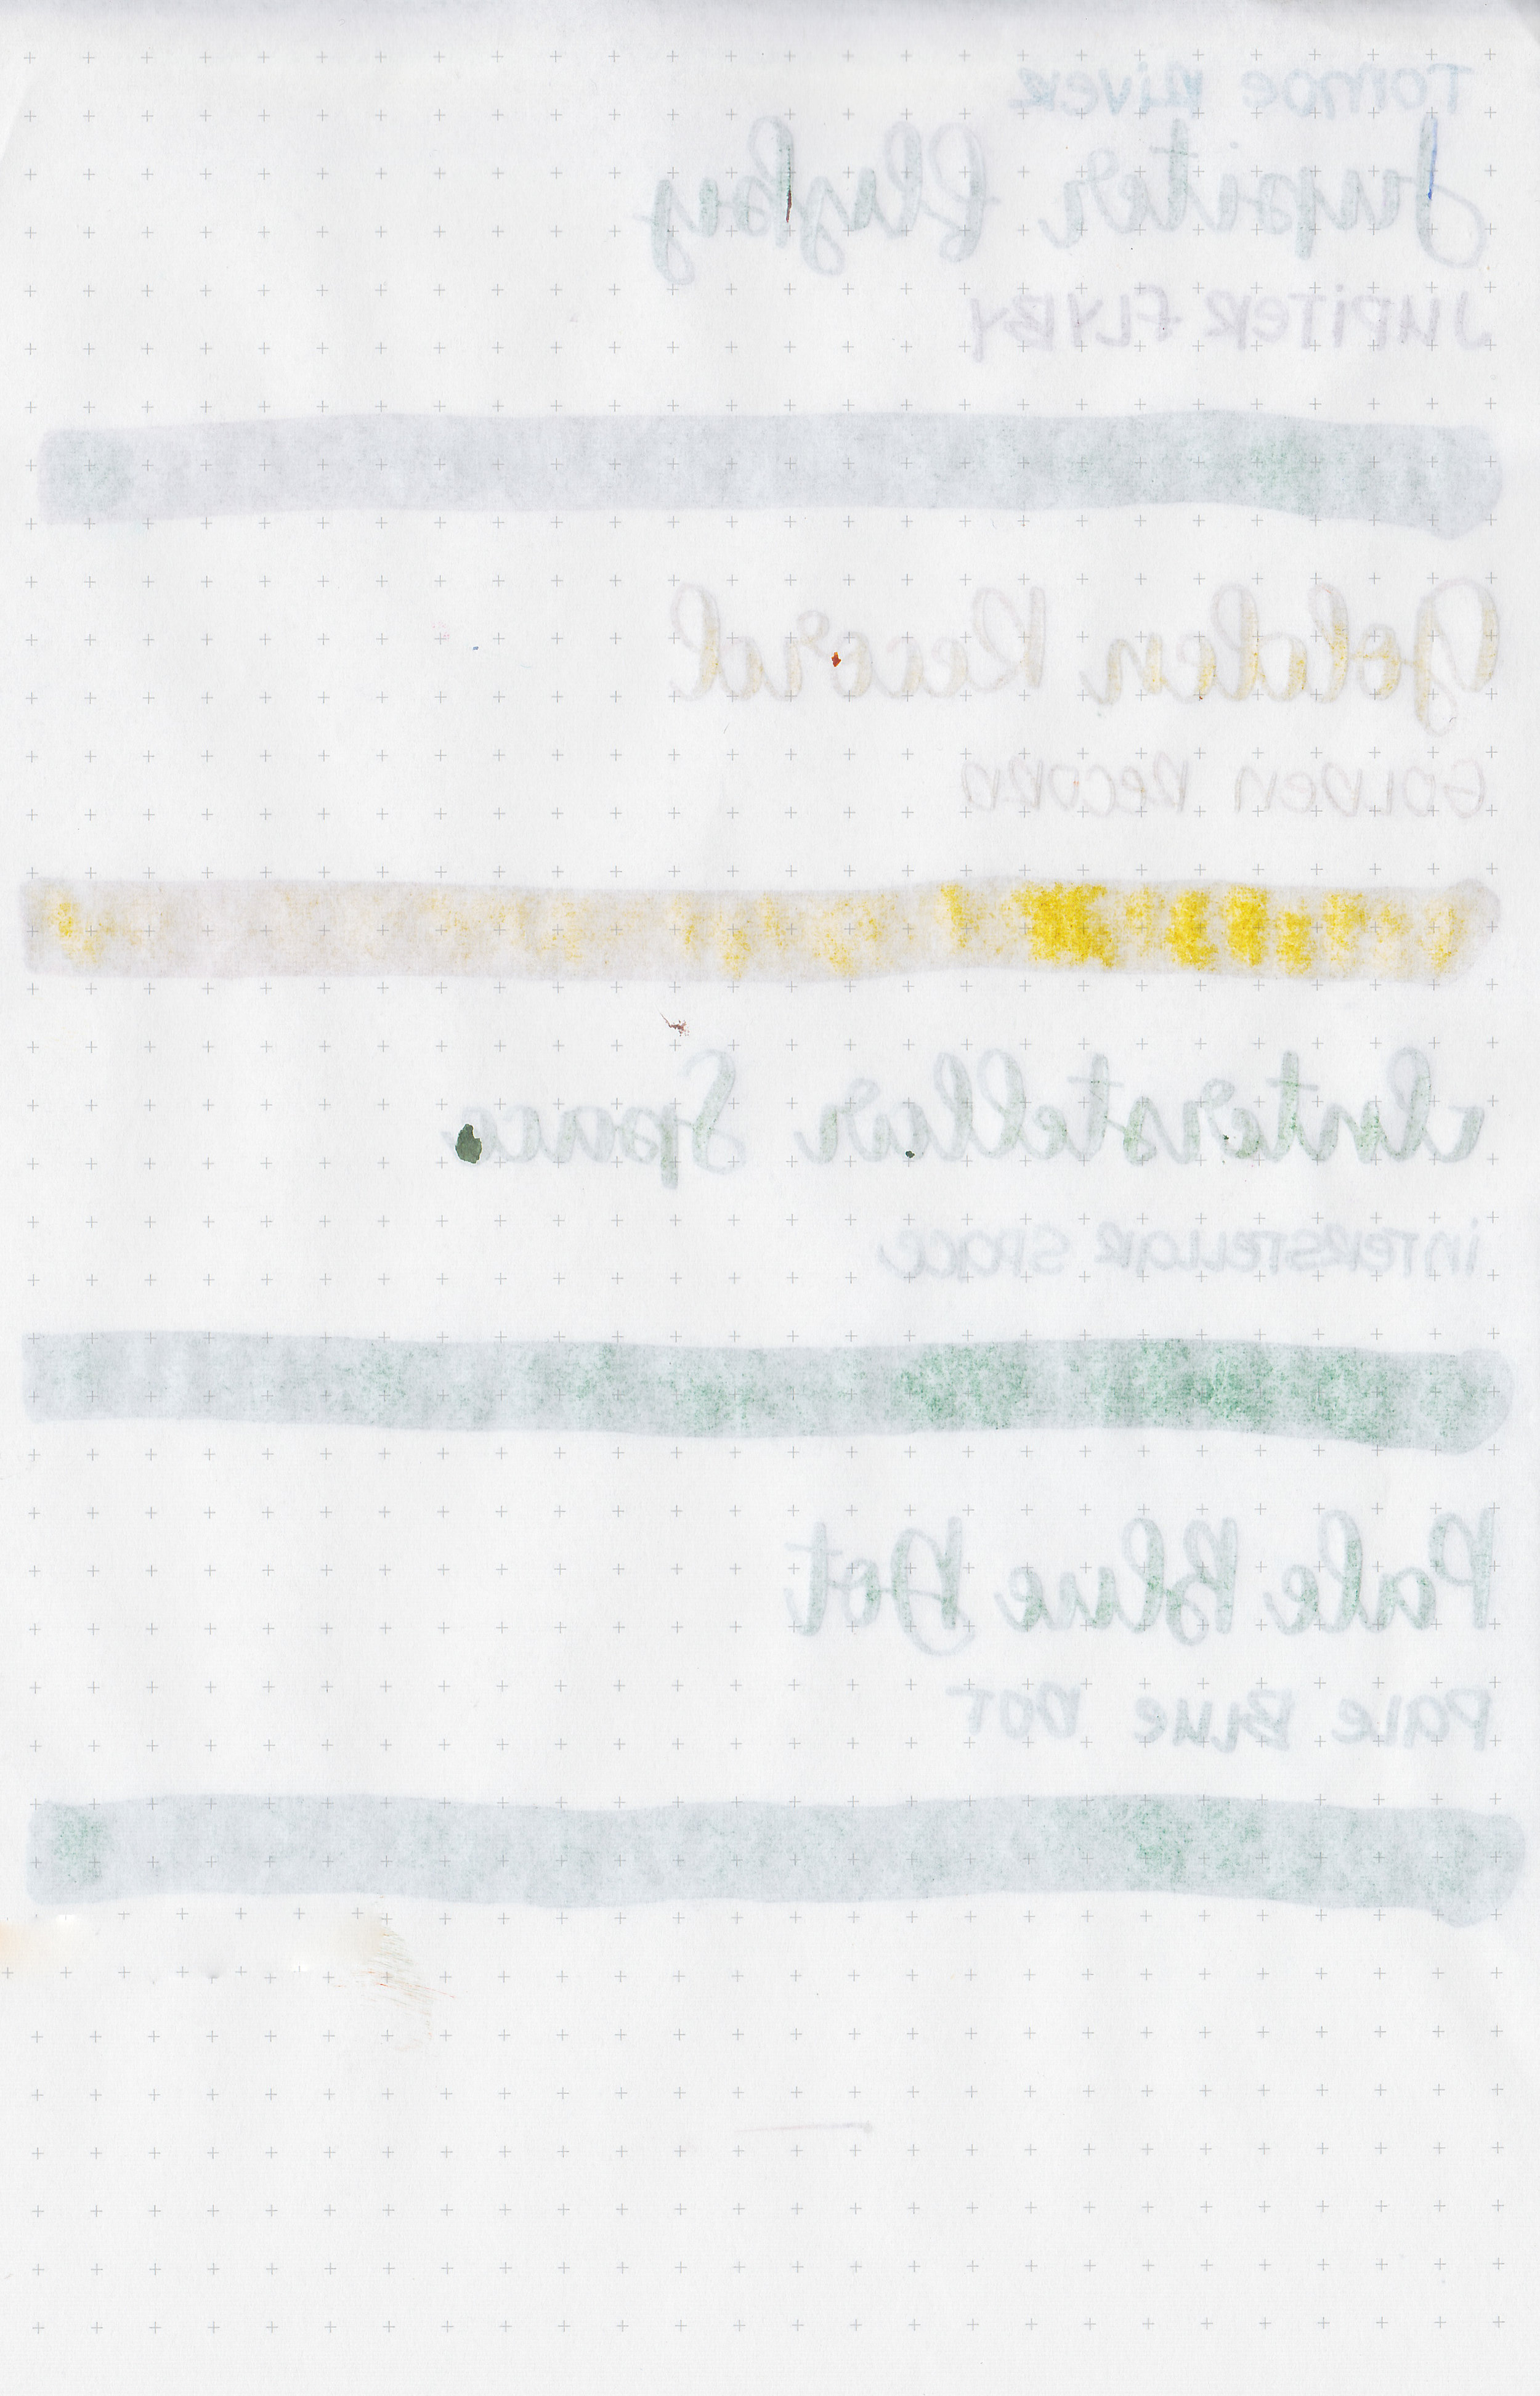 Tomoe River
Jupiter Flyby
JUPITER FLYBY
Golden Record
GOLDEN RECORD
Interstellar Space
INTERSTELLAR SPACE
Pale Blue Dot
PALE BLUE DOT